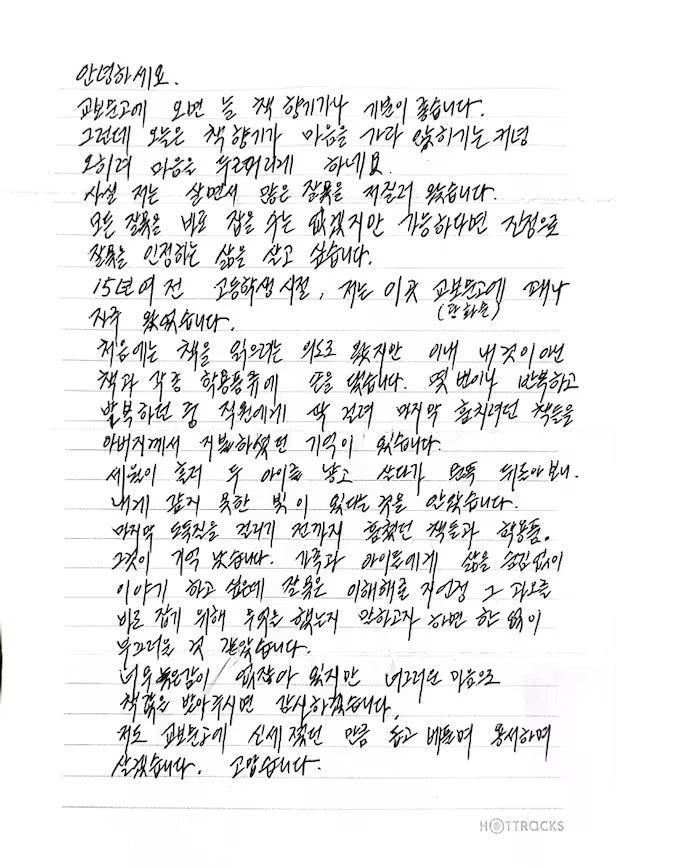 안녕하세요.
교보문고에 오면 늘 책 향기가나 기분이 좋습니다.
그런데 오늘은 책 향기가 마음을 가라 앉히기는 커녕
오히려 마음을 무르익게 하네요.
사실 저는 살면서 많은 잘못을 저질러 왔습니다.
모든 잘못을 바로 잡을 수는 없겠지만 가능하다면 진정으로
잘못을 인정하는 삶을 살고 싶습니다.
15년여 전 고등학생 시절, 저는 이곳 교보문고에 꽤나
(광화문)
자주 왔었습니다.
처음에는 책을 읽으려는 의도로 왔지만 이내 내 것이 아닌
책과 각종 학용품류에 손을 댔습니다. 몇 번이나 반복하고
발복하던 중 직원에게 딱 걸려 마지막 훔치려던 책들을
아버지께서 지불하셨던 기억이 있습니다.
세월이 흘러 두 아이를 낳고 살다가 문득 뒤돌아 보니.
내게 갚지 못한 빚이 있다는 것을 알았습니다.
마지막 도둑질을 걸리기 전까지 훔쳤던 책들과 학용품.
그것이 기억 났습니다. 가족과 아이들에게 삶을 숨김 없이
이야기 하고 싶은데 잘못은 이해해줄 지언정 그 과오를
바로 잡기 위해 무엇을 했는지 말하고자 하면 한 없이
부끄러울 것 같았습니다.
너무 늦은감이 없잖아 있지만 너그러운 마음으로
책값을 받아주시면 감사하겠습니다.
저도 교보문고에 신세 졌던 만큼 돕고 베풀며 용서하며
살겠습니다. 고맙습니다.
HOTTRACKS